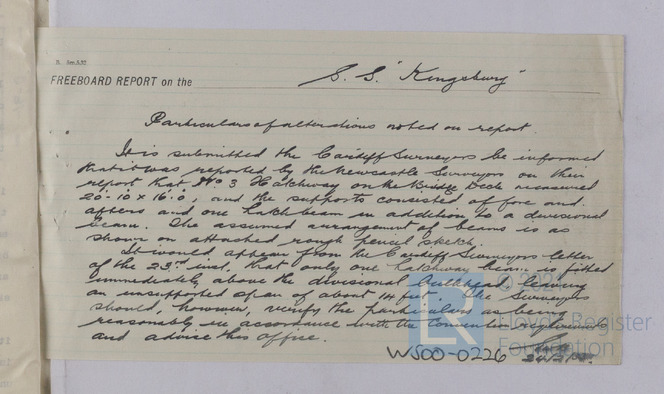 FREEBOARD REPORT on the S.S. "Kingsbury"
Particulars of alterations noted on report.
It is submitted the Cardiff Surveyors be informed
that it was reported by the Newcastle Surveyors on their
report that No 3 Hatchway on the Bridge Deck measured
20'-10 x 16'.0, and the supports consisted of fore and
afters and one hatch beam in addition to a divisional
beam. The assumed arrangement of beams is as
shown on attached rough pencil sketch.
It would appear from the Cardiff Surveyors letter
of the 23rd inst. that only one hatchway beam is fitted
immediately above the divisional bulkhead, leaving
an unsupported span of about 14 feet. The Surveyors
should, however, verify the particulars as being
reasonably in accordance with the Convention requirements
and advise this office.
W500-0226
Lloyd's Register
Foundation